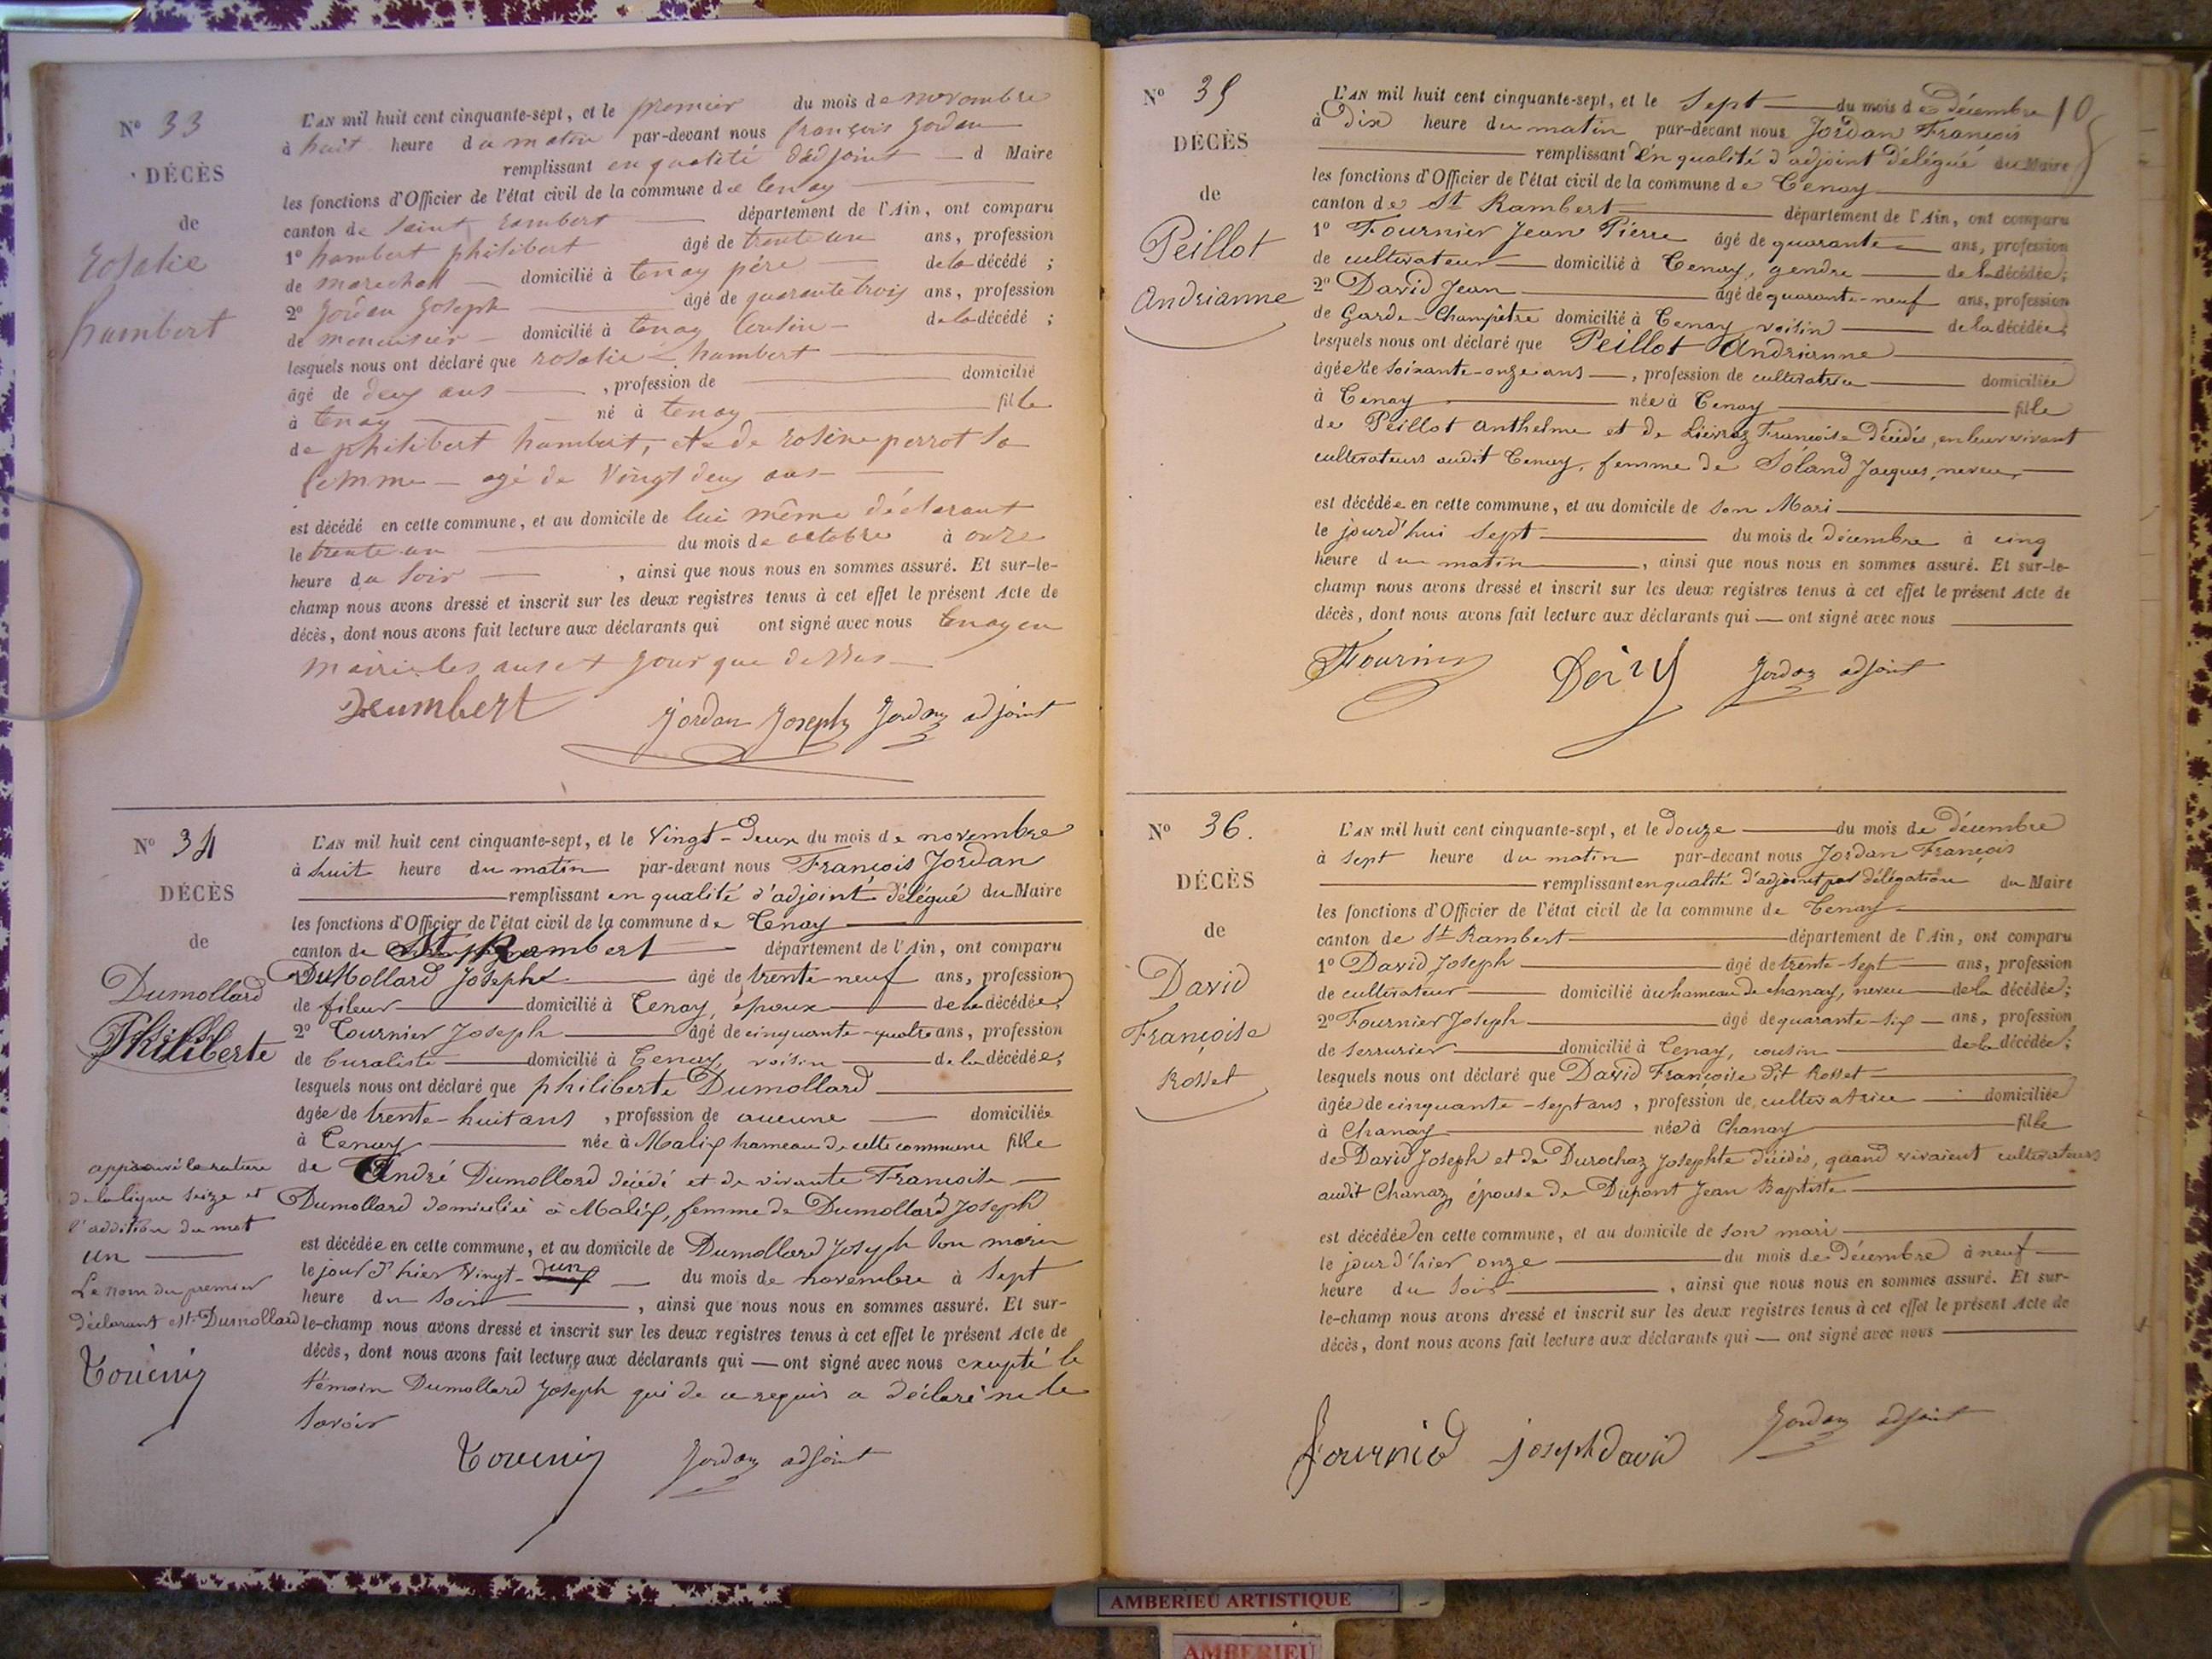 N° 33
DÉCÈS
de
Rosalie
humbert
L'AN mil huit cent cinquante-sept, et le premier du mois de novembre
à huit heure du matin par-devant nous françois Jordan
remplissant en qualité d'adjoint d Maire
les fonctions d'Officier de l'état civil de la commune de tenay
canton de Saint rambert département de l'Ain, ont comparu
1° humbert philibert âgé de trente un ans, profession
de marechall domicilié à tenay père de la décédé ;
2° Jordan Joseph âgé de quarante trois ans, profession
de menuisier domicilié à tenay Cousin de la décédé ;
lesquels nous ont déclaré que rosalie humbert
âgé de deux ans , profession de domicilié
à tenay né à tenay fille
de philibert humbert, et de rosine perrot sa
femme agé de Vingt deux ans
est décédé en cette commune, et au domicile de lui même déclarant
le trente un du mois de octobre à onze
heure du soir , ainsi que nous nous en sommes assuré. Et sur-le-
champ nous avons dressé et inscrit sur les deux registres tenus à cet effet le présent Acte de
décès, dont nous avons fait lecture aux déclarants qui ont signé avec nous tenay en
mairie les ans et Jour que dessus
humbert Jordan Joseph Jordan adjoint
N° 34
DÉCÈS
de
Dumollard
Philiberte
L'AN mil huit cent cinquante-sept, et le Vingt-deux du mois de novembre
à huit heure du matin par-devant nous François Jordan
remplissant en qualité d'adjoint délégué du Maire
les fonctions d'Officier de l'état civil de la commune de Tenay
canton de St Rambert département de l'Ain, ont comparu
DuMollard Joseph âgé de trente-neuf ans, profession
de fileur domicilié à Tenay, époux de la décédée ;
2° Tournier Joseph âgé de cinquante-quatre ans, profession
de buraliste domicilié à Tenay, voisin de la décédée ;
lesquels nous ont déclaré que philiberte Dumollard
âgée de trente-huit ans , profession de aucune domiciliée
à Tenay née à Malix hameau de cette commune fille
de André Dumollard décédé et de vivante Françoise
Dumollard domiciliée à Malix, femme de Dumollard Joseph
est décédée en cette commune, et au domicile de Dumollard Joseph son mari
le jour d'hier Vingt-un du mois de novembre à sept
heure du soir , ainsi que nous nous en sommes assuré. Et sur-
le-champ nous avons dressé et inscrit sur les deux registres tenus à cet effet le présent Acte de
décès, dont nous avons fait lecture aux déclarants qui — ont signé avec nous excepté le
témoin Dumollard Joseph qui de ce requis a déclaré ne le
savoir
approuvé la rature
de la ligne seize et
l'addition du mot
un
Le nom du premier
déclarant est Dumollard
Tournier
Tournier Jordan adjoint
N° 35
DÉCÈS
de
Peillot
Andrianne
L'AN mil huit cent cinquante-sept, et le Sept du mois de décembre 10
à Dix heure du matin par-devant nous Jordan François
remplissant en qualité d'adjoint délégué du Maire
les fonctions d'Officier de l'état civil de la commune de Tenay
canton de St Rambert département de l'Ain, ont comparu
1° Fournier Jean Pierre âgé de quarante ans, profession
de cultivateur domicilié à Tenay, gendre de la décédée ;
2° David Jean âgé de quarante-neuf ans, profession
de Garde-Champêtre domicilié à Tenay voisin de la décédée ;
lesquels nous ont déclaré que Peillot Andrianne
âgée de soixante-onze ans , profession de cultivatrice domiciliée
à Tenay née à Tenay fille
de Peillot Anthelme et de Lievraz Françoise décédés, en leur vivant
cultivateurs audit Tenay, femme de Soland Jacques, neveu
est décédée en cette commune, et au domicile de son Mari
le jourd'hui sept du mois de décembre à cinq
heure du matin , ainsi que nous nous en sommes assuré. Et sur-le-
champ nous avons dressé et inscrit sur les deux registres tenus à cet effet le présent Acte de
décès, dont nous avons fait lecture aux déclarants qui — ont signé avec nous
Fournier David Jordan adjoint
N° 36.
DÉCÈS
de
David
Françoise
Rosset
L'AN mil huit cent cinquante-sept, et le douze du mois de décembre
à sept heure du matin par-devant nous Jordan François
remplissant en qualité d'adjoint par délégation du Maire
les fonctions d'Officier de l'état civil de la commune de Tenay
canton de St Rambert département de l'Ain, ont comparu
1° David Joseph âgé de trente-sept ans, profession
de cultivateur domicilié au hameau de chanay, neveu de la décédée ;
2° Fournier Joseph âgé de quarante-six ans, profession
de serrurier domicilié à Tenay, cousin de la décédée ;
lesquels nous ont déclaré que David Françoise dit Rosset
âgée de cinquante-sept ans , profession de cultivatrice domiciliée
à Chanay née à Chanay fille
de David Joseph et de Durochaz Josephte décédés, quand vivaient cultivateurs
audit Chanaz, épouse de Dupont Jean Baptiste
est décédée en cette commune, et au domicile de son mari
le jour d'hier onze du mois de Décembre à neuf
heure du soir , ainsi que nous nous en sommes assuré. Et sur-
le-champ nous avons dressé et inscrit sur les deux registres tenus à cet effet le présent Acte de
décès, dont nous avons fait lecture aux déclarants qui — ont signé avec nous
fournier joseph david Jordan adjoint
AMBERIEU ARTISTIQUE
AMBERIEU